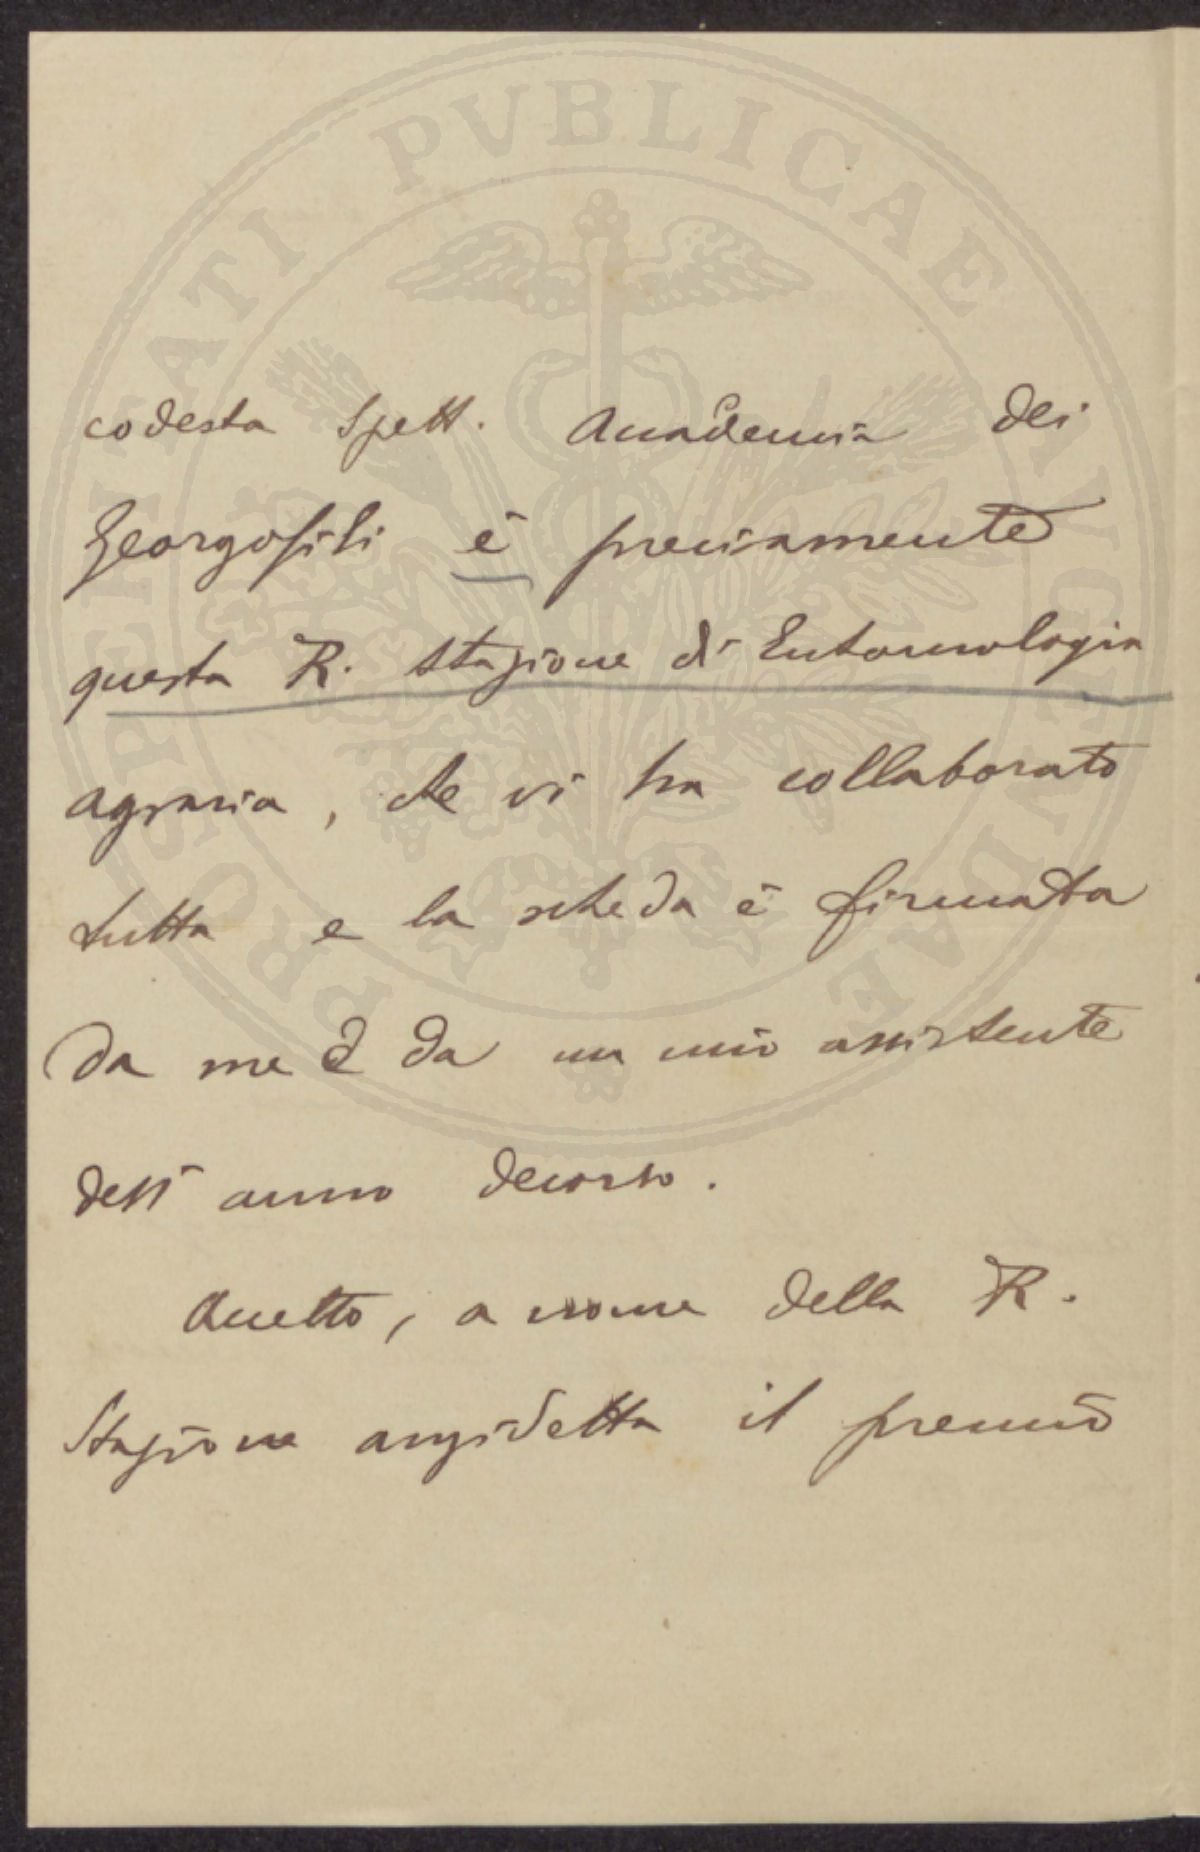 PROSPERITATI PUBLICAE AUGENDAE
codesta Spett. Accademia dei
Georgofili è precisamente
questa R. Stazione di Entomologia
agraria, che vi ha collaborato
tutta e la scheda è firmata
da me e da un mio assistente
dell'anno decorso.
Accetto, a nome della R.
Stazione anzidetta il premio